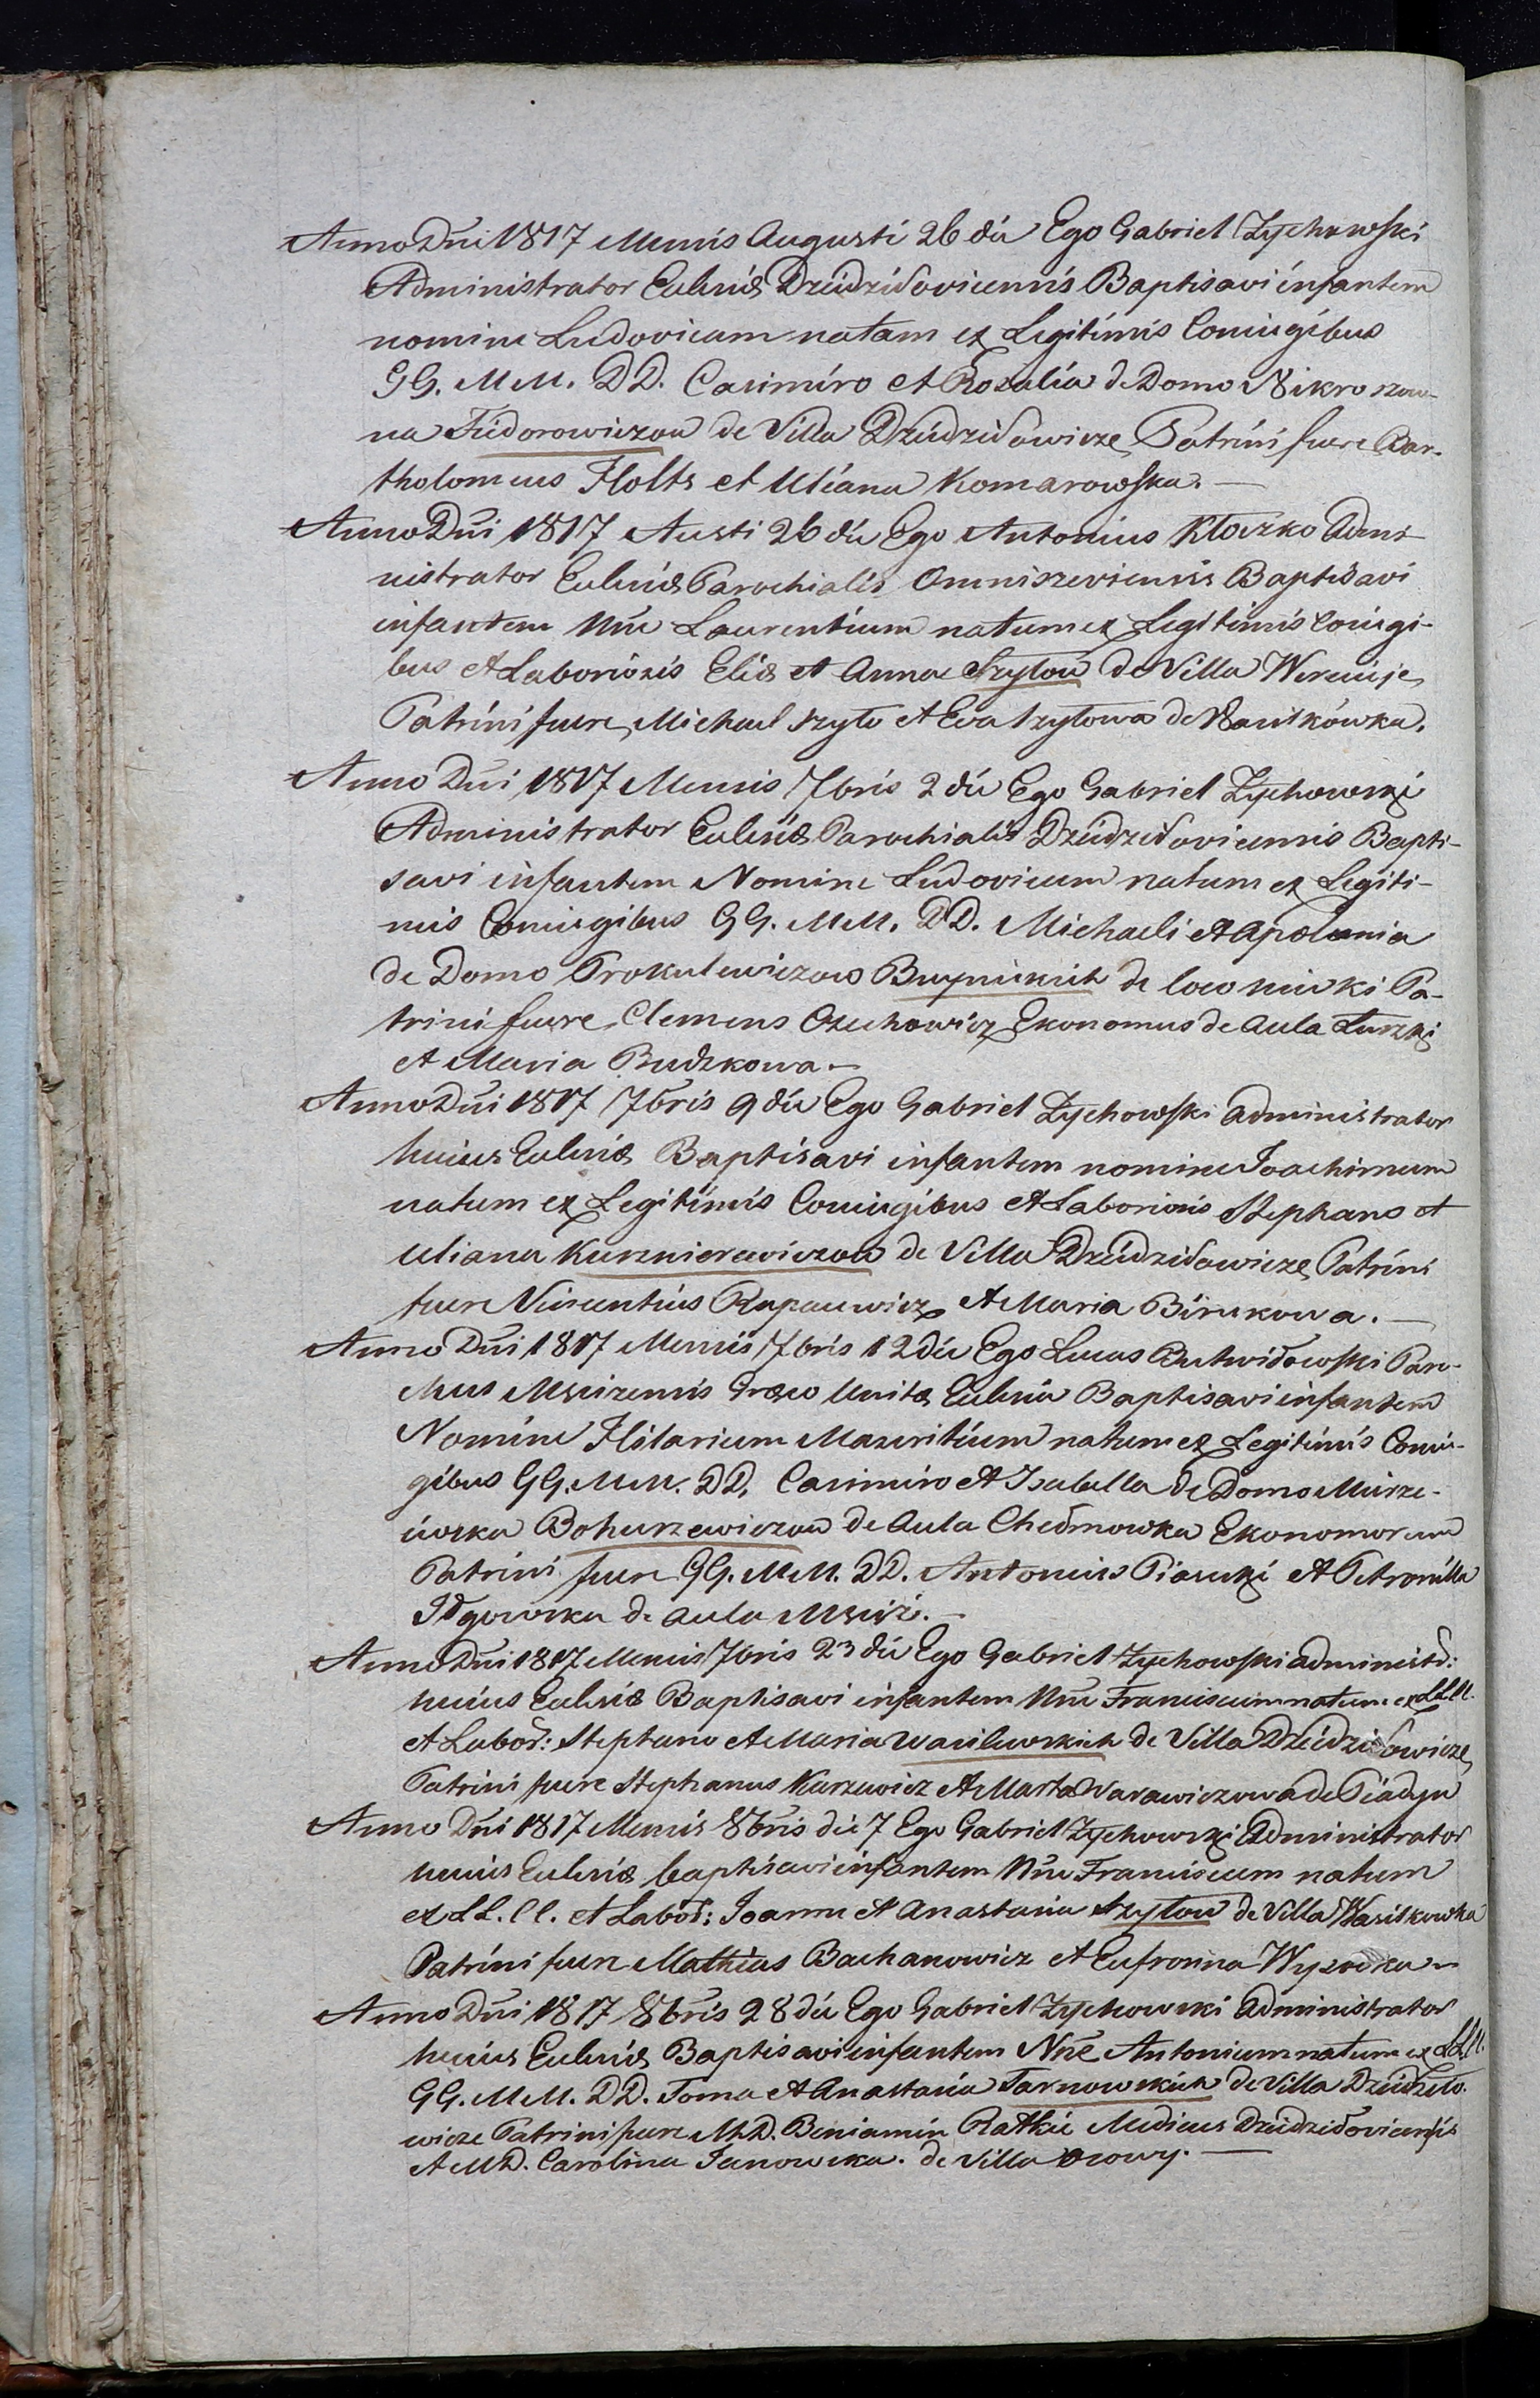 Anno Dni 1817 Mensis Augusti 26 die Ego Gabriel Zychowski
Administrator Eclesiæ Dziudziłovicensis Baptisavi infantem
nomine Ludovicam natam ex Legitimis Coniugibus
GG. MM. DD. Casimiro et Rozalia de Domo
na Fiedorowiczow de Villa Dziudziłowicze Patrini fuere Bar-
tholomeus Holts et Uliana Komarowska. —
Anno Dni 1817 Austi 26 die Ego Antonius Kłoczko Admi-
nistrator Eclesiæ Parochialis Omniszeviensis Baptisavi
infantem Nne Laurentium natum ex Legitimis Coniugi-
bus et Laboriosis Eliæ et Anna Szytow de Villa
Patrini fuere Michael Szyto et Eva Szytowa de Wasilkówka.
Anno Dni 1817 Mensis 7bris 2 die Ego Gabriel Zychowski
Administrator Eclesiæ Parochialis Dziudziłovicensis Bapti-
savi infantem Nomine Ludovicum natum ex Legiti-
mis Coniugibus GG. MM. DD. Michaeli et Apolonia
de Domo Prokulewiczow de Patrini Pa-
trini fuere Clemens Ozechowicz Ekonomus de Aula Łuszki
et Maria Budzkowa. —
Anno Dni 1817 7bris 9 die Ego Gabriel Zychowski Administrator
huius Eclesiæ Baptisavi infantem nomine Joachimum
natum ex Legitimis Coniugibus et Laboriosis Stephano et
Uliana Kusznierewiczow de Villa Dziudziłowicze Patrini
fuere Vincentius Rapacewicz et Maria Birukowa. —
Anno Dni 1817 Mensis 7bris 12 die Ego Lucas Butwiłowski Paro-
chus Mscizensis Græco Unitæ Eclesiæ Baptisavi infantem
Nomine Hilarium Mauritium natum ex Legitimis Coniu-
gibus GG. MM. DD. Casimiro et Isabella de Domo Mirze-
iewska Bohuszewiczow de Aula Chełmowka Ekonomorum
Patrini fuere GG. MM. DD. Antonius Piasecki et Petronilla
de Aula Msciż. —
Anno Dni 1817 Mensis 7bris 23 die Ego Gabriel Zychowski Administr:
huius Eclesiæ Baptisavi infantem Nne Franciscum natum ex LL. CC.
et Labor: Stephano et Maria Wasilewskich de Villa Dziudziłowicze
Patrini fuere Stephanus Kurzewicz et Marta Warawiczowa de Piadyn
Anno Dni 1817 Mensis 8bris die 7 Ego Gabriel Zychowski Administrator
huius Eclesiæ baptisavi infantem Nne Franciscum natum
ex LL. CC. et Labor: Joanne et Anastasia Szytow de Villa Wasilkowka
Patrini fuere Mathias Bachanowicz et Eufrosina Wysocka —
Anno Dni 1817 8bris 28 die Ego Gabriel Zychowski Administrator
huius Eclesiæ Baptisavi infantem Nne Antonium natum ex LL. CC.
GG. MM. DD. Toma et Anastasia Tarnowskich de Villa Dziudziło-
wicze Patrini fuere M.D. Beniamin Ratkie Medicus Dziudziłovicensis
et M.D. Carolina Janowska. de Villa Osowy. —